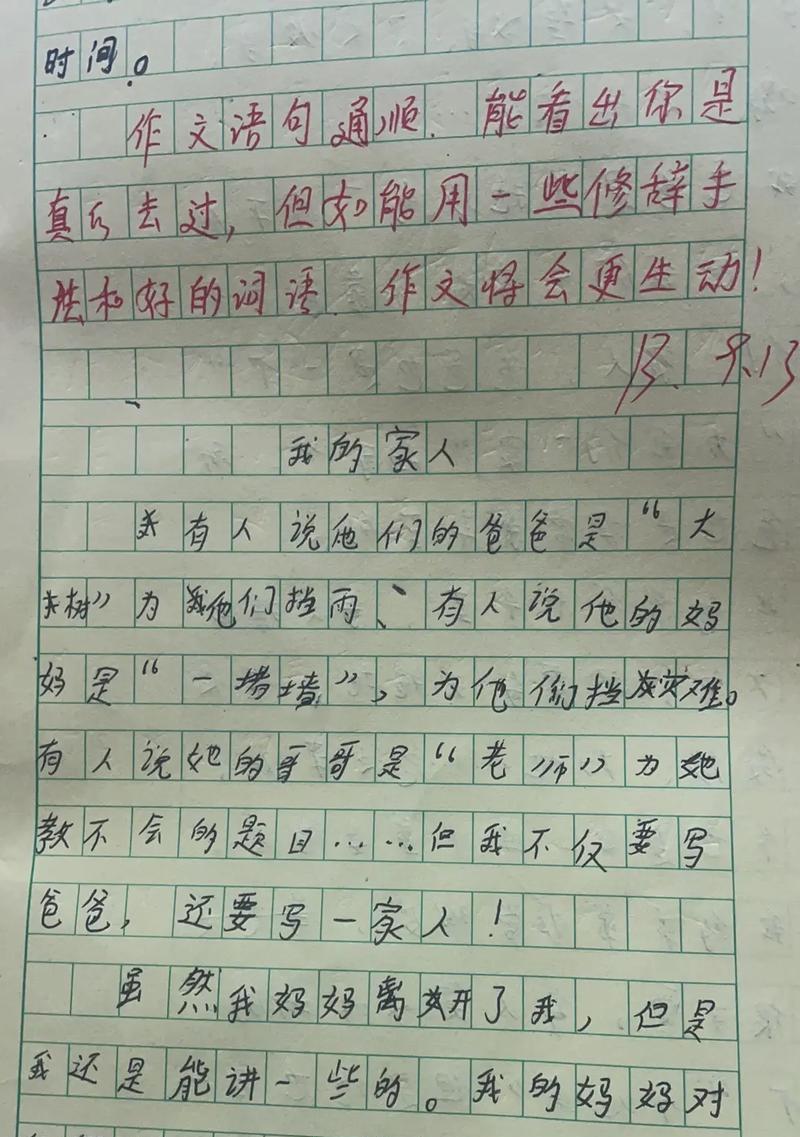 时间。
作文语句通顺.能看出你是
真的去过,但如能用一些修辞手
法和好的词语.作文将会更生动!
9.13
我的家人
有人说他们的爸爸是“大
树”为他们挡雨、有人说他的妈
妈是“一堵墙”,为他们挡灾难。
有人说她的哥哥是“老师”为她
教不会的题目……但我不仅要写
爸爸,还要写一家人!
虽然我妈妈离开了我,但是
我还是能讲一些的。我的妈妈对